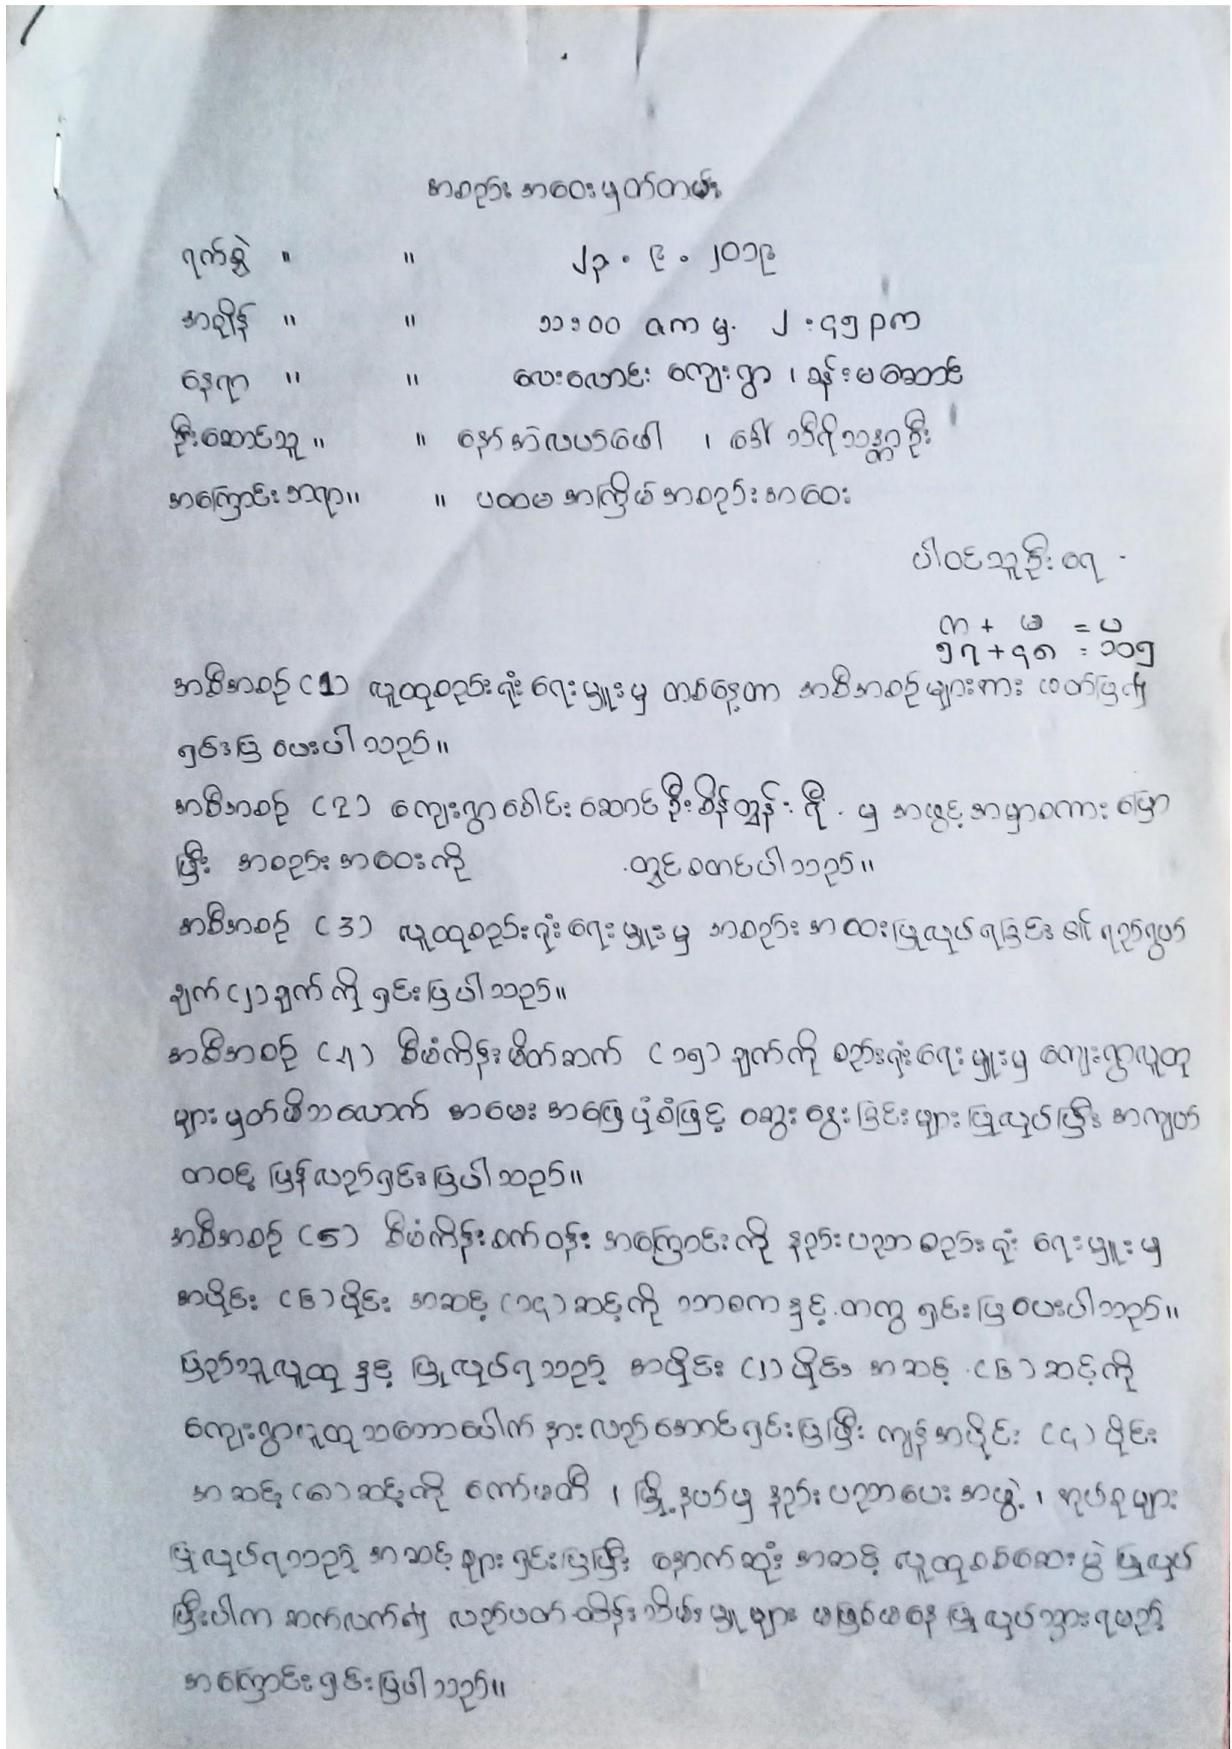 အစည်းအဝေးမှတ်တမ်း
ရက်စွဲ " " ၂၃.၉.၂၀၁၉
အချိန် " " ၁၁:၀၀ am မှ ၂:၄၅ pm
နေရာ " " လေးလောင်းကျေးရွာ ၊ ခန်းမဆောင်
ဦးဆောင်သူ " " နော်အဲလပယ်ဖေါ ၊ ဒေါ်သီရိသန္တာဦး
အကြောင်းအရာ " " ပထမအကြိမ်အစည်းအဝေး
ပါဝင်သူဦးရေ
က + မ = ပ
၅၇+၄၈ = ၁၀၅
အစီအစဉ် (1) လူထုစည်းရုံးရေးမှူးမှ တစ်နေ့တာ အစီအစဉ်များအား ဖတ်ပြ၍
ရှင်းပြပေးပါသည်။
အစီအစဉ် (2) ကျေးရွာခေါင်းဆောင်ဦးစိန်ထွန်းရီ မှ အဖွင့်အမှာစကားပြော
ပြီး အစည်းအဝေးကို တွင်စတင်ပါသည်။
အစီအစဉ် (3) လူထုစည်းရုံးရေးမှူးမှ အစည်းအဝေးပြုလုပ်ရခြင်း၏ ရည်ရွယ်
ချက် (၂) ချက်ကို ရှင်းပြပါသည်။
အစီအစဉ် (4) စီမံကိန်းမိတ်ဆက် (၁၅) ချက်ကို စည်းရုံးရေးမှူးမှ ကျေးရွာလူထု
များမှတ်မိသလောက် အမေးအဖြေပုံစံဖြင့် ဆွေးနွေးခြင်းများပြုလုပ်ပြီး အကျယ်
တဝင့် ပြန်လည်ရှင်းပြပါသည်။
အစီအစဉ် (5) စီမံကိန်းစက်ဝန်း အကြောင်းကို နည်းပညာစည်းရုံးရေးမှူးမှ
အပိုင်း (၆) ပိုင်း အဆင့် (၁၄) ဆင့်ကို သာဓကနှင့်တကွ ရှင်းပြပေးပါသည်။
ပြည်သူလူထုနှင့် ပြုလုပ်ရသည့် အပိုင်း (၂) ပိုင်း အဆင့် (၆) ဆင့်ကို
ကျေးရွာလူထုသဘောပေါက် နားလည်အောင်ရှင်းပြပြီး ကျန်အပိုင်း (၄) ပိုင်း
အဆင့် (၈) ဆင့်ကို ကော်မတီ ၊ မြို့နယ်မှ နည်းပညာပေးအဖွဲ့ ၊ အုပ်စုများ
ပြုလုပ်ရသည့် အဆင့်များရှင်းပြပြီး နောက်ဆုံးအဆင့် လူထုစစ်ဆေးပွဲ ပြုလုပ်
ပြီးပါက ဆက်လက်၍ လည်ပတ်ထိန်းသိမ်းမှုများ မဖြစ်မနေ ပြုလုပ်သွားရမည့်
အကြောင်းရှင်းပြပါသည်။